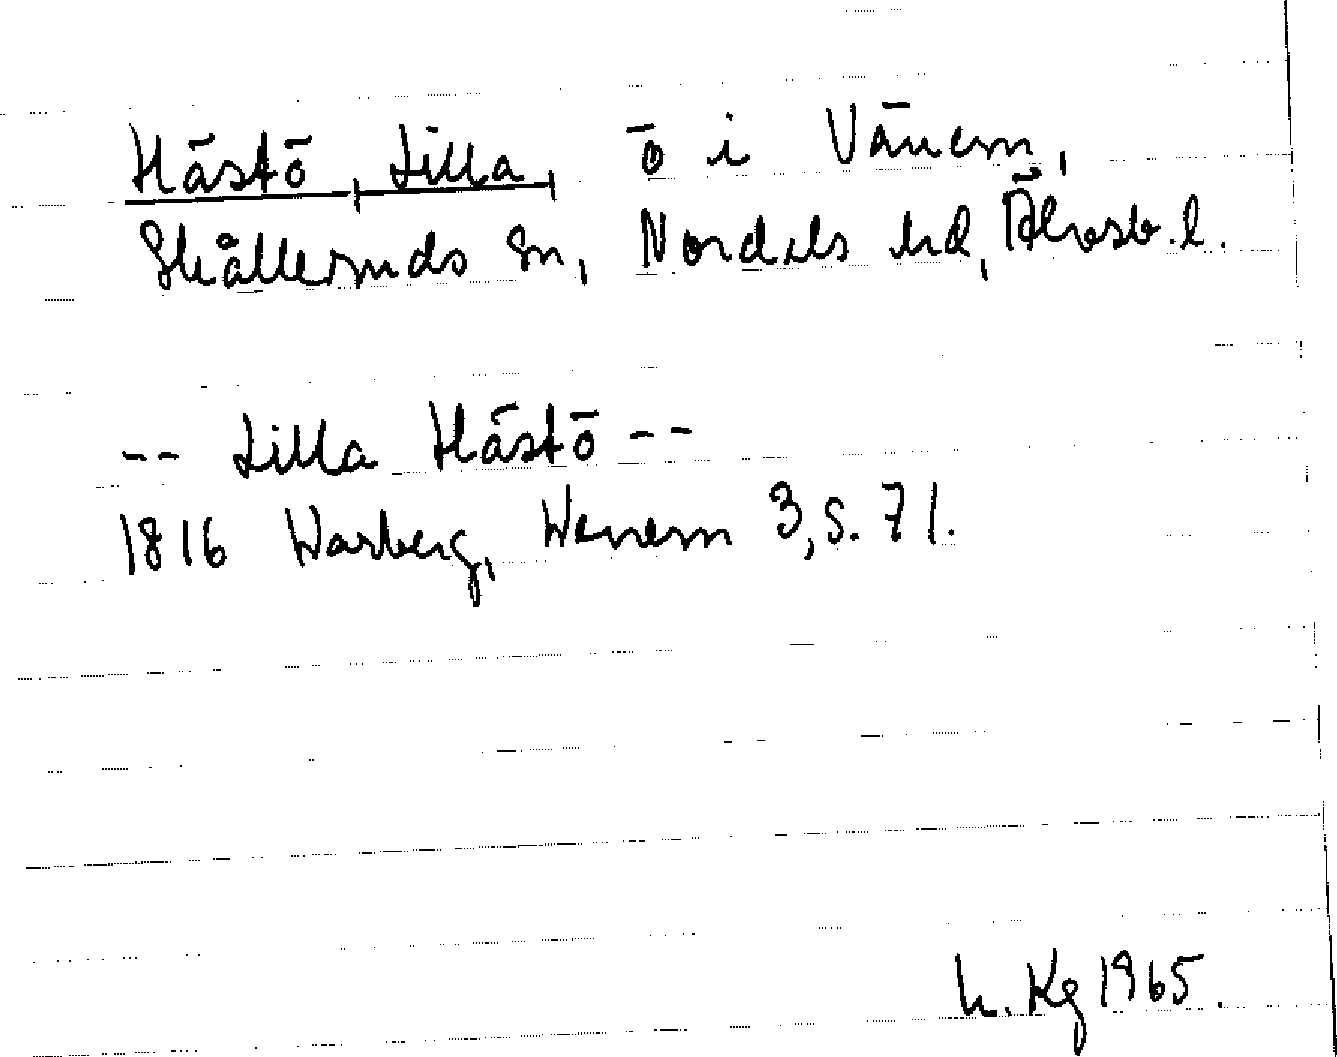 Hästö, Lilla, ö i Vänern,
Skålleruds sn, Nordals hd, Älvsb. l.
-- Lilla Hästö --
1816 Warberg, Wenern 3, s. 71.
L. Kg 1965.